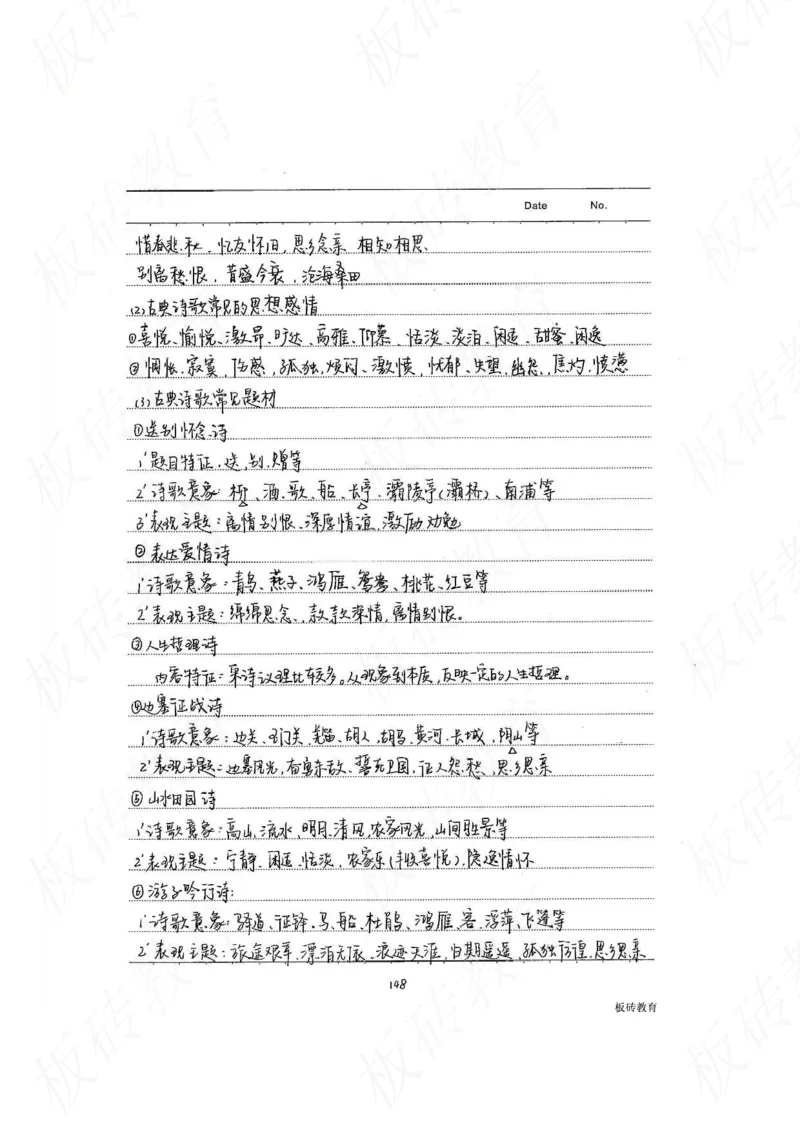 Date No.
惜春悲秋、忆友怀旧,思乡念亲 相知相思、
别离愁恨,昔盛今衰,沧海桑田
(2)古典诗歌常见的思想感情
①喜悦、愉悦、激昂、旷达、高雅、仰慕、恬淡、淡泊、闲适、甜蜜、闲逸
②惆怅、寂寞、伤感,孤独,烦闷、激愤,忧郁、失望、幽怨、焦灼,愤懑
(3)古典诗歌常见题材
①送别怀念诗
1'题目特征、送,别、赠等
2'诗歌意象 柳、酒、歌、船、长亭、灞陵亭(灞桥)、南浦等
3'表现主题:离情别恨、深厚情谊、激励劝勉
②表达爱情诗
1'诗歌意象:青鸟、燕子、鸿雁、鸳鸯、桃花、红豆等
2'表现主题:绵绵思念、款款柔情,离情别恨。
③人生哲理诗
内容特征:宋诗议理比较多。从现象到本质,反映一定的人生哲理。
④边塞征战诗
1'诗歌意象:边关、玉门关、羌笛、胡人、胡马、黄河、长城,阴山等
2'表现主题:边塞风光,奋勇杀敌、誓死卫国,征人怨愁,思乡思亲
⑤山水田园诗
1'诗歌意象:高山、流水、明月、清风、农家风光,山间胜景等
2'表现主题:宁静、闲适、恬淡、农家乐(丰收喜悦)、隐逸情怀
⑥游子吟行诗:
1'诗歌意象:驿道、征铎、马、船、杜鹃、鸿雁、客、浮萍、飞蓬等
2'表现主题:旅途艰辛,漂泊无依、浪迹天涯,归期遥遥,孤独彷徨、思乡思亲
148
板砖教育